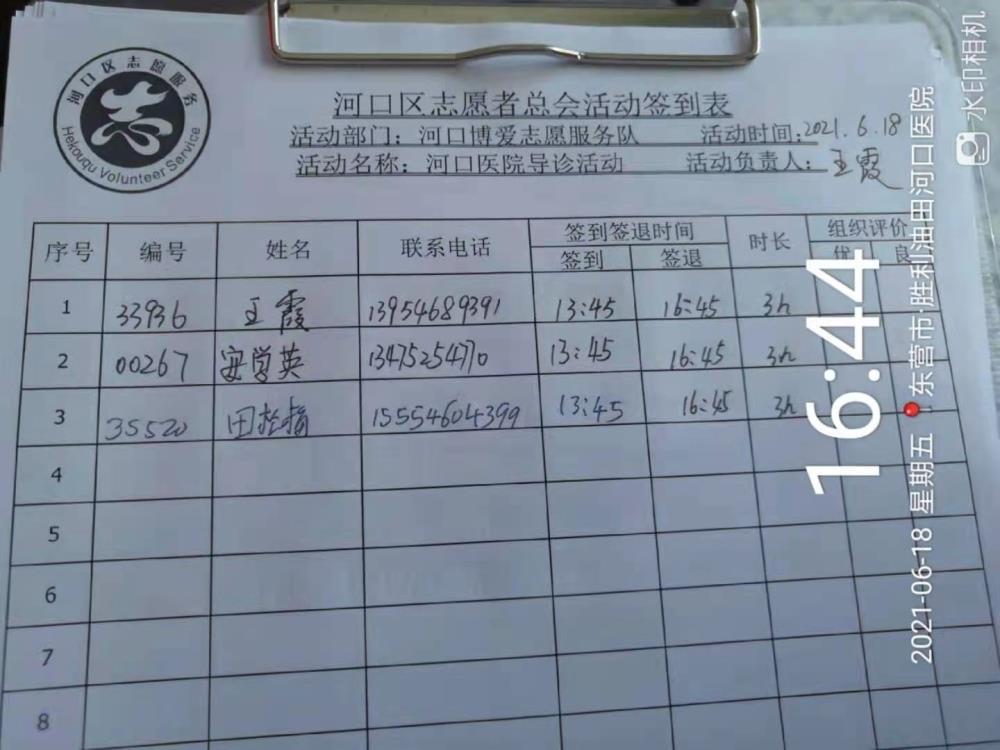 河口区志愿服务
志
Hekouqu Volunteer Service
河口区志愿者总会活动签到表
活动部门：河口博爱志愿服务队 活动时间：2021.6.18
活动名称：河口医院导诊活动 活动负责人：王霞
序号 编号 姓名 联系电话 签到签退时间 时长 组织评价
签到 签退 优 良
1 33936 王霞 13954689391 13:45 16:45 3h
2 00267 安学英 13475254770 13:45 16:45 3h
3 35520 田 15554604399 13:45 16:45 3h
4
5
6
7
8
16:44
2021-06-18 星期五 东营市·胜利油田河口医院
水印相机